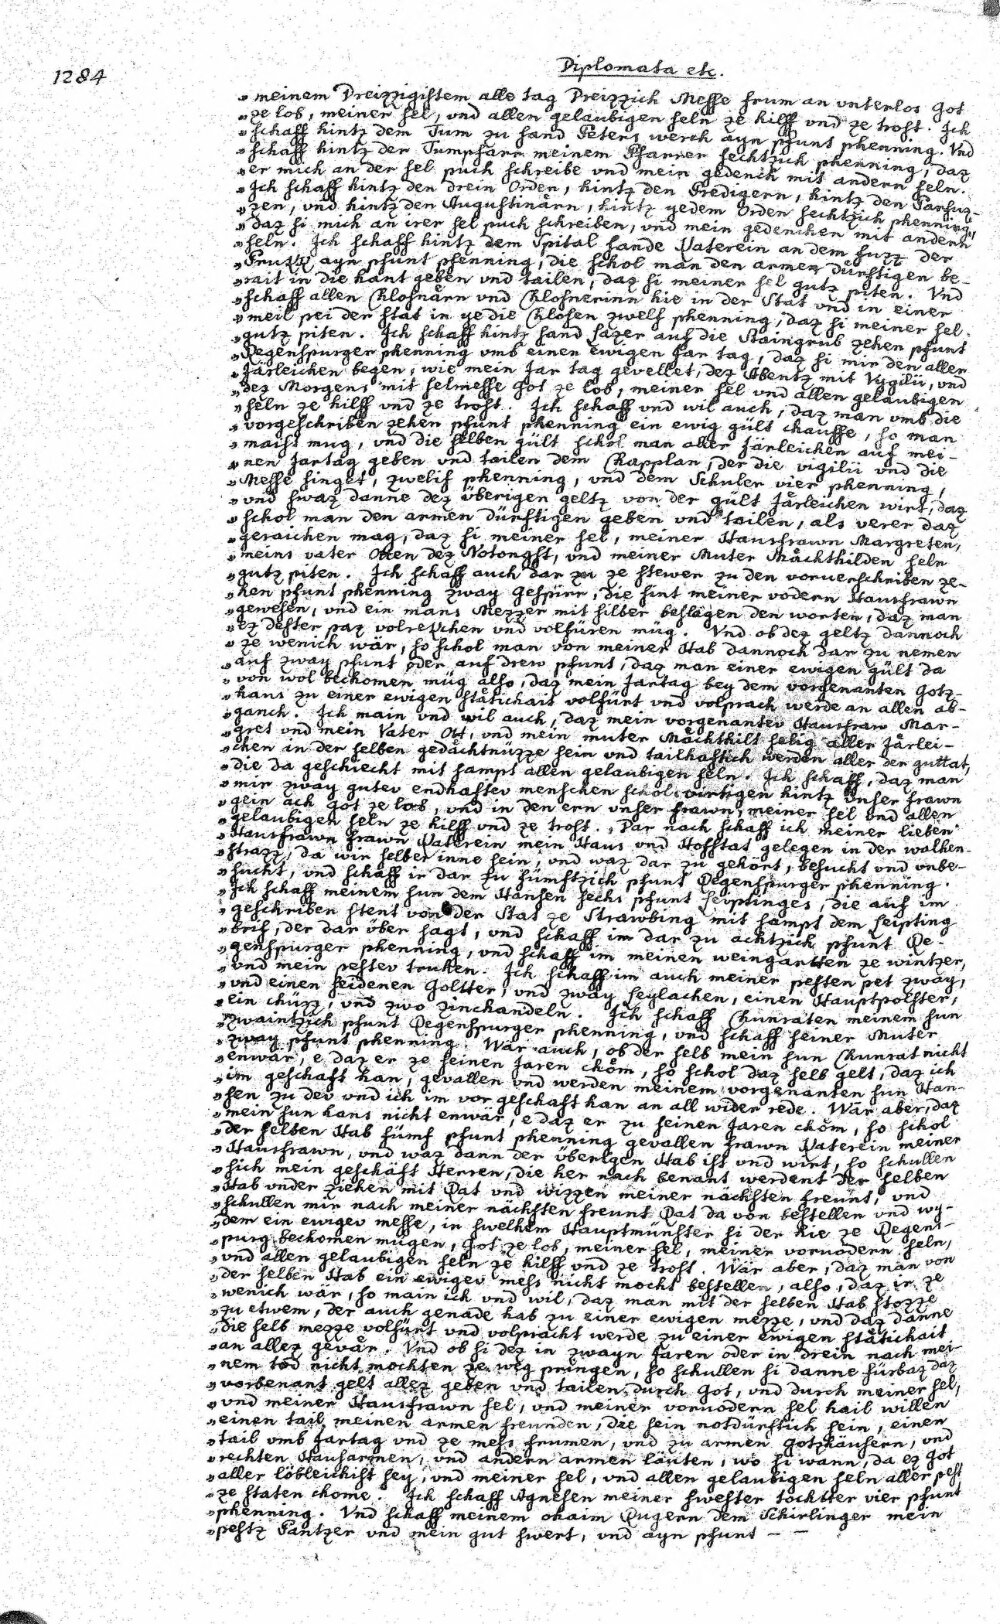 1284
Diplomata etc.
» meinem Dreizzigistem alle tag Dreizzich Messe frum an unterlos Got
» ze lob, meiner sel, und allen gelaubigen seln ze hilff und ze trost. Ich
» schaff hintz dem Tum zu sand Peters werch ayn phunt phenning. Und
» schaff hintz der Tumpfarr meinem Pfarrer sechtzich phenning, daz
» er mich an der sel puch schreibe und mein gedench mit andern seln.
» Ich schaff hintz den drein Orden, hintz den Predigern, hintz den Parfuz-
» zen, und hintz den Augustinärn, hintz yedem Orden sechtzich phenning,
» daz si mich an irer sel puch schreiben, und mein gedenchen mit andern
» seln. Ich schaff hintz dem Spital sande Katerein an dem fuzz der
» Prukk ayn phunt phenning, die schol man den armen dürftigen be-
» rait in die hant geben und tailen, daz si meiner sel gutz piten. Und
» schaff allen Chlosnärn und Chlosnerinn hie in der Stat und in einer
» meil pei der stat in ye die Chlosen zwelf phenning, daz si meiner sel
» gutz piten. Ich schaff hintz sand Lazer auf die Staingrub zehen phunt
» Regenspurger phenning umb einen ewigen Jar tag, daz si mir den aller
» Järleichen begen, wie mein Jar tag gevellet, dez Abentz mit Vigilii, und
» dez Morgens mit selmesse Got ze lob, meiner sel und allen gelaubigen
» seln ze hilff und ze trost. Ich schaff und wil auch, daz man umb die
» vorgeschriben zehen phunt phenning ein ewig gült chauffe, so man
» maist mug, und die selben gült schol man aller Järleichen auf mei-
» nen Jartag geben und tailen dem Chapplan, der die vigilii und die
» Messe singet, zwelif phenning, und dem Schuler vier phenning,
» und swaz danne dez überigen geltz von der gült Järleichen wirt, daz
» schol man den armen dürftigen geben und tailen, als verer daz
» geraichen mag, daz si meiner sel, meiner Hausfrawn Margreten,
» meins vater Otten dez Notongst, und meiner Muter Mächthilden seln
» gutz piten. Ich schaff auch dar zu ze stewer zu den vorverschreiben ze-
» hen phunt phenning zway gespirr, die sint meiner vodern Hausfrawn
» gewesen, und ein mans Mezzer mit silber beslagen den worten, daz man
» ez dester paz volrekchen und volfüren müg. Und ob dez geltz dannoch
» ze wenich wär, so schol man von meiner Hab dannoch dar zu nemen
» auf zway phunt oder auf drew phunt, daz man einer ewigen gült da
» von wol bechomen müg also, daz mein Jartag bey dem vorgenanten Gotz-
» haus zu einer ewigen stätichait volfürt und volpracht werde an allen ab-
» ganch. Ich main und wil auch, daz mein vorgenantev Hausfraw Mar-
» gret und mein Vater Ott, und mein muter Mächthilt selig aller Järlei-
» chen in der selben gedächtnüzze sein und tailhaftich werden aller der guttat,
» die da geschiecht mit sampt allen gelaubigen seln. Ich schaff, daz man
» mir zway gutev endhaftev menschen schol virtigen hintz unser frawn
» gein ach Got ze lob, und in den ern unser frawn, meiner sel und allen
» gelaubigen seln ze hilff und ze trost. Dar nach schaff ich meiner lieben
» Hausfrawn frawn Katerein mein Haus und Hofstat gelegen in der walhen-
» strazz, da wir selber inne sein, und waz dar zu gehört, besucht und unbe-
» sucht, und schaff ir dar zu fümftzich phunt Regenspurger phenning.
» Ich schaff meinem sun dem Hansen sechs phunt leiptinges, die auf im
» geschriben stent von der Stat ze Strawbing mit sampt dem leipting
» brif, der dar über sagt, und schaff im dar zu achtzich phunt Re-
» genspurger phenning, und schaff im meinen weingartten ze wintzer,
» und mein pestev truhen. Ich schaff im auch meiner pesten pet zway,
» und einen seidenen Goltter, und zway leylachen, einen Hauptpolster,
» ein chüzz, und zwo zinchandeln. Ich schaff Chunraten meinem sun
» zwaintzich phunt Regenspurger phenning, und schaff seiner Muter
» zway phunt phenning. Wär auch, ob der selb mein sun Chunrat nicht
» enwär, e daz er ze seinen Jaren chöm, so schol daz selb gelt, daz ich
» im geschaft han, gevallen und werden meinem vorgenanten sun Han-
» sen zu dev und ich im vor geschaft han an all wider rede. Wär aber, daz
» mein sun hans nicht enwär, e daz er zu seinen Jaren chöm, so schol
» der selben Hab fümf phunt phenning gevallen frawn Katerein meiner
» Hausfrawn, und waz dann der überigen Hab ist und wirt, so schullen
» sich mein geschäft Herren, die her nach benant werdent der selben
» Hab under ziehen mit Rat und wizzen meiner nächsten freunt, und
» schullen mir nach meiner nächsten freunt Rat da von bestellen und wy-
» dem ein ewigev messe, in swelhem Hauptmünster si der hie ze Regens-
» purg bechomen mügen, Got ze lob, meiner sel, meiner vorvodern seln,
» und allen gelaubigen seln ze hilff und ze trost. Wär aber, daz man von
» der selben Hab ein ewigev mess nicht mocht bestellen, also, daz ir ze
» wenich wär, so main ich und wil, daz man mit der selben Hab stozze
» zu etwem, der auch genade hab zu einer ewigen mezze, und daz danne
» die selb mezze volfürt und volpracht werde zu einer ewigen stätichait
» an allez gevär. Und ob si dez in zwayn Jaren oder in drein nach mei-
» nem tod nicht mochten ze weg pringen, so schullen si danne fürbaz daz
» vorbenant gelt allez geben und tailen durch Got, und durch meiner sel,
» und meiner Hausfrawn sel, und meiner vorvodern sel hail willen
» einen tail meinen armen freunden, die sein notdürftich sein, einen
» tail umb Jartag und ze mess frumen, und zu armen Gotzhäusern, und
» rechten Hausarmen, und andern armen läuten, wo si wänn, da ez Got
» aller löbleichist sey, und meiner sel, und allen gelaubigen seln aller pest
» ze staten chome. Ich schaff Agnesen meiner swester tochtter vier phunt
» phenning. Und schaff meinem ohaim Rugern dem Schirlinger mein
» pestz Pantzer und mein gut swert, und ayn phunt – –